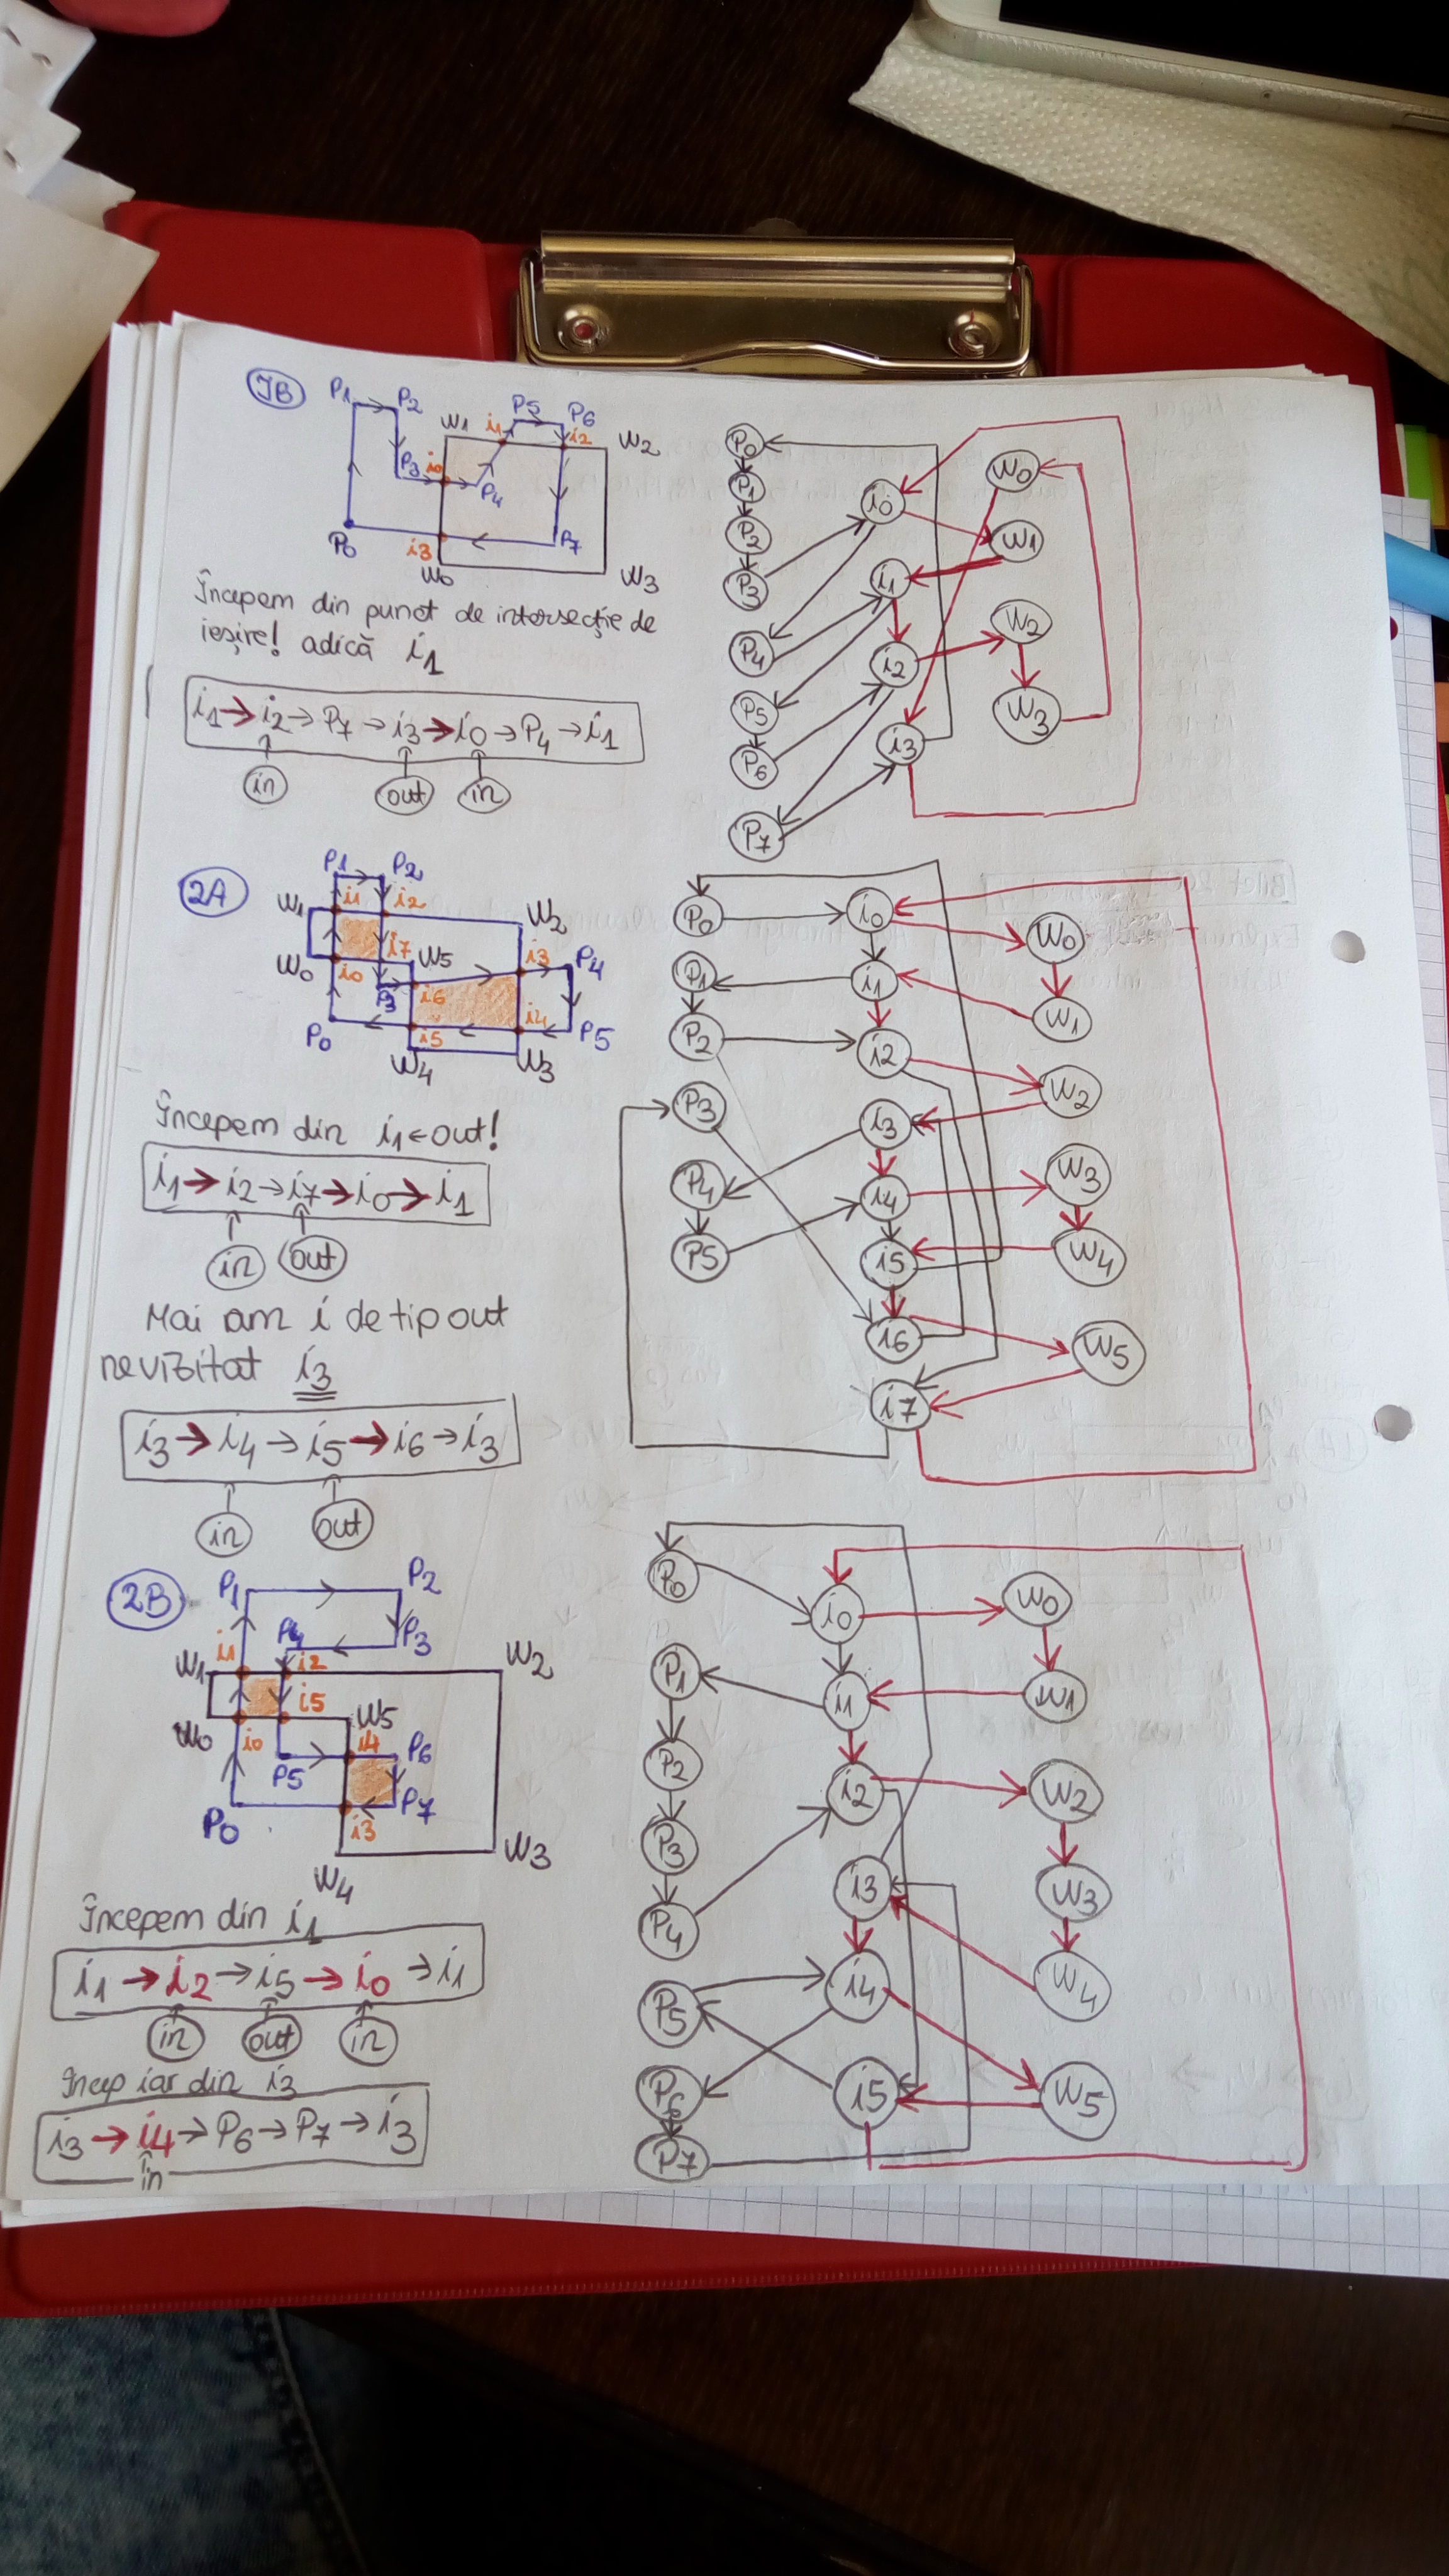 1B
P1 P2 P5 P6
W1 i1 i2 W2
P3 i0 P4
P0 i3 P7
W0 W3
Începem din punct de intersecție de
ieșire! adică i1
i1 → i2 → P7 → i3 → i0 → P4 → i1
in out in
P0 P1 P2 P3 P4 P5 P6 P7
i0 i1 i2 i3
W0 W1 W2 W3
2A
P1 P2
W1 i1 i2 W2
W0 i0 i7 W5 i3 P4
P3 i6
P0 i5 i4 P5
W4 W3
Începem din i1 ← out!
i1 → i2 → i7 → i0 → i1
in out
Mai am i de tip out
nevizitat i3
i3 → i4 → i5 → i6 → i3
in out
P0 P1 P2 P3 P4 P5
i0 i1 i2 i3 i4 i5 i6 i7
W0 W1 W2 W3 W4 W5
2B
P1 P2
P4 P3
W1 i1 i2 W2
W0 i0 i5 W5
P5 i4 P6
P0 i3 P7
W4 W3
Începem din i1
i1 → i2 → i5 → i0 → i1
in out in
Încep iar din i3
i3 → i4 → P6 → P7 → i3
in
P0 P1 P2 P3 P4 P5 P6 P7
i0 i1 i2 i3 i4 i5
W0 W1 W2 W3 W4 W5